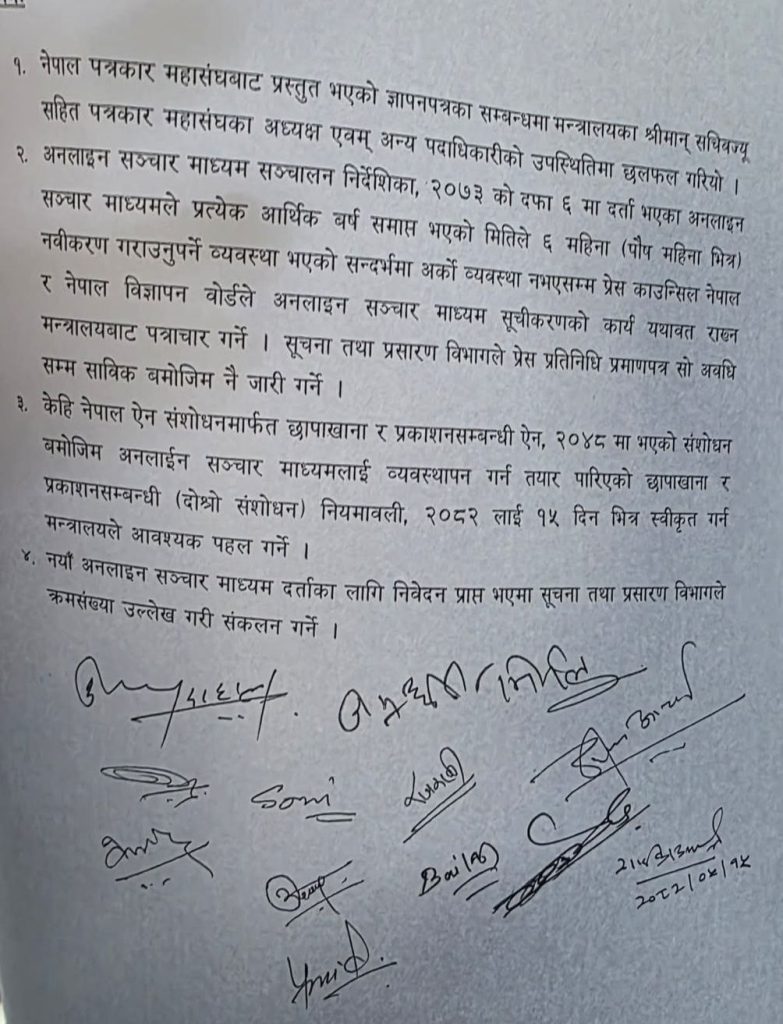 १. नेपाल पत्रकार महासंघबाट प्रस्तुत भएको ज्ञापनपत्रका सम्बन्धमा मन्त्रालयका श्रीमान् सचिवज्यू
सहित पत्रकार महासंघका अध्यक्ष एवम् अन्य पदाधिकारीको उपस्थितिमा छलफल गरियो ।
२. अनलाइन सञ्चार माध्यम सञ्चालन निर्देशिका, २०७३ को दफा ६ मा दर्ता भएका अनलाइन
सञ्चार माध्यमले प्रत्येक आर्थिक बर्ष समाप्त भएको मितिले ६ महिना (पौष महिना भित्र)
नवीकरण गराउनुपर्ने व्यवस्था भएको सन्दर्भमा अर्को व्यवस्था नभएसम्म प्रेस काउन्सिल नेपाल
र नेपाल विज्ञापन वोर्डले अनलाइन सञ्चार माध्यम सूचीकरणको कार्य यथावत राख्न
मन्त्रालयबाट पत्राचार गर्ने । सूचना तथा प्रसारण विभागले प्रेस प्रतिनिधि प्रमाणपत्र सो अवधि
सम्म साविक बमोजिम नै जारी गर्ने ।
३. केहि नेपाल ऐन संशोधनमार्फत छापाखाना र प्रकाशनसम्बन्धी ऐन, २०४८ मा भएको संशोधन
बमोजिम अनलाईन सञ्चार माध्यमलाई व्यवस्थापन गर्न तयार पारिएको छापाखाना र
प्रकाशनसम्बन्धी (दोश्रो संशोधन) नियमावली, २०८२ लाई १५ दिन भित्र स्वीकृत गर्न
मन्त्रालयले आवश्यक पहल गर्ने ।
४. नयाँ अनलाइन सञ्चार माध्यम दर्ताका लागि निवेदन प्राप्त भएमा सूचना तथा प्रसारण विभागले
क्रमसंख्या उल्लेख गरी संकलन गर्ने ।
Soni
२०८२/०५/१५